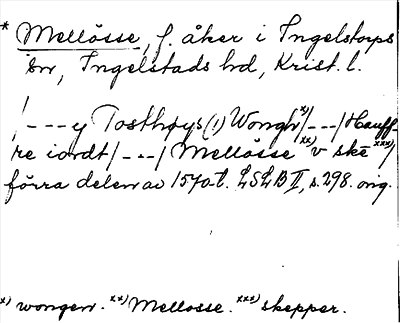 * Mellösse, f. åker i Ingelstorps
sn, Ingelstads hd, Krist. l.
/---y Tosthøys (!) Wongh x)/---/ Hauff-
re iordt/---/ Mellösse xx) v ske xxx)/
förra delen av 1570-t. LSLB II, s. 298. orig.
x) wongen. xx) Mellosse. xxx) skepper.